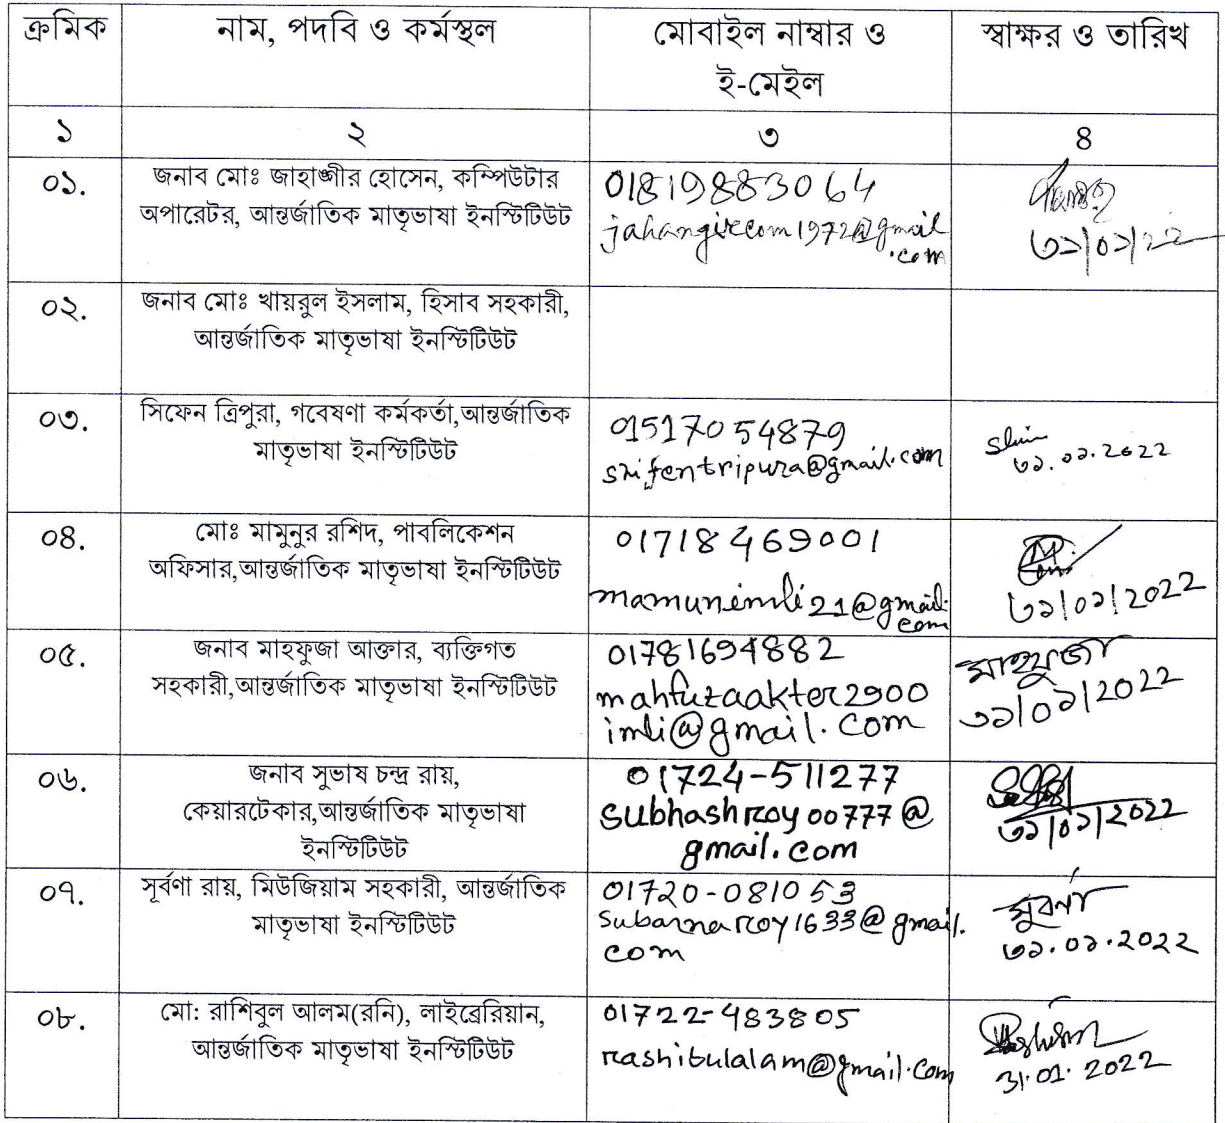 ক্রমিক নাম, পদবি ও কর্মস্থল মোবাইল নাম্বার ও স্বাক্ষর ও তারিখ
ই-মেইল
১ ২ ৩ ৪
০১. জনাব মোঃ জাহাঙ্গীর হোসেন, কম্পিউটার
অপারেটর, আন্তর্জাতিক মাতৃভাষা ইনস্টিটিউট
01819883064
jahangircom1972@gmail
.com
৩১/০১/২২
০২. জনাব মোঃ খায়রুল ইসলাম, হিসাব সহকারী,
আন্তর্জাতিক মাতৃভাষা ইনস্টিটিউট
০৩. সিফেন ত্রিপুরা, গবেষণা কর্মকর্তা,আন্তর্জাতিক
মাতৃভাষা ইনস্টিটিউট
01517054879
৩১.০১.2022
০৪. মোঃ মামুনুর রশিদ, পাবলিকেশন
অফিসার,আন্তর্জাতিক মাতৃভাষা ইনস্টিটিউট
01718469001
mamunimli21@gmail.
com
৩১/০১/2022
০৫. জনাব মাহফুজা আক্তার, ব্যক্তিগত
সহকারী,আন্তর্জাতিক মাতৃভাষা ইনস্টিটিউট
01781694882
mahfuzaakter2900
imli@gmail.com
মাহফুজা
৩১/০১/2022
০৬. জনাব সুভাষ চন্দ্র রায়,
কেয়ারটেকার,আন্তর্জাতিক মাতৃভাষা
ইনস্টিটিউট
01724-511277
subhashroy00777@
gmail.com
৩১/০১/2022
০৭. সূর্বণা রায়, মিউজিয়াম সহকারী, আন্তর্জাতিক
মাতৃভাষা ইনস্টিটিউট
01720-081053
subarnaroy1633@gmail.
com
সুবর্ণা
৩১.০১.2022
০৮. মো: রাশিবুল আলম(রনি), লাইব্রেরিয়ান,
আন্তর্জাতিক মাতৃভাষা ইনস্টিটিউট
01722-483805
rashibulalam@gmail.com
31.01.2022